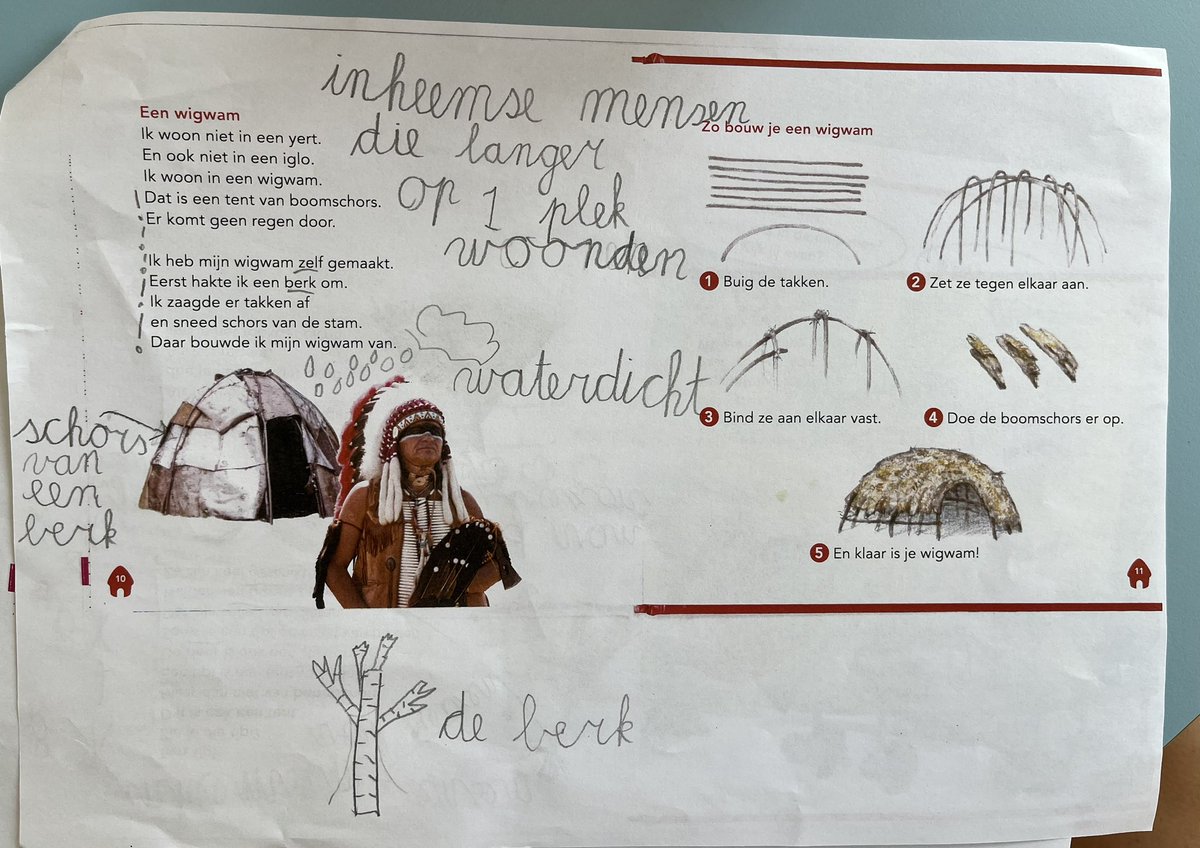 inheemse mensen
die langer
op 1 plek
woonden
Een wigwam
Ik woon niet in een yert.
En ook niet in een iglo.
Ik woon in een wigwam.
Dat is een tent van boomschors.
Er komt geen regen door.
Ik heb mijn wigwam zelf gemaakt.
Eerst hakte ik een berk om.
Ik zaagde er takken af
en sneed schors van de stam.
Daar bouwde ik mijn wigwam van.
waterdicht
schors
van
een
berk
10
de berk
Zo bouw je een wigwam
1 Buig de takken.
2 Zet ze tegen elkaar aan.
3 Bind ze aan elkaar vast.
4 Doe de boomschors er op.
5 En klaar is je wigwam!
11